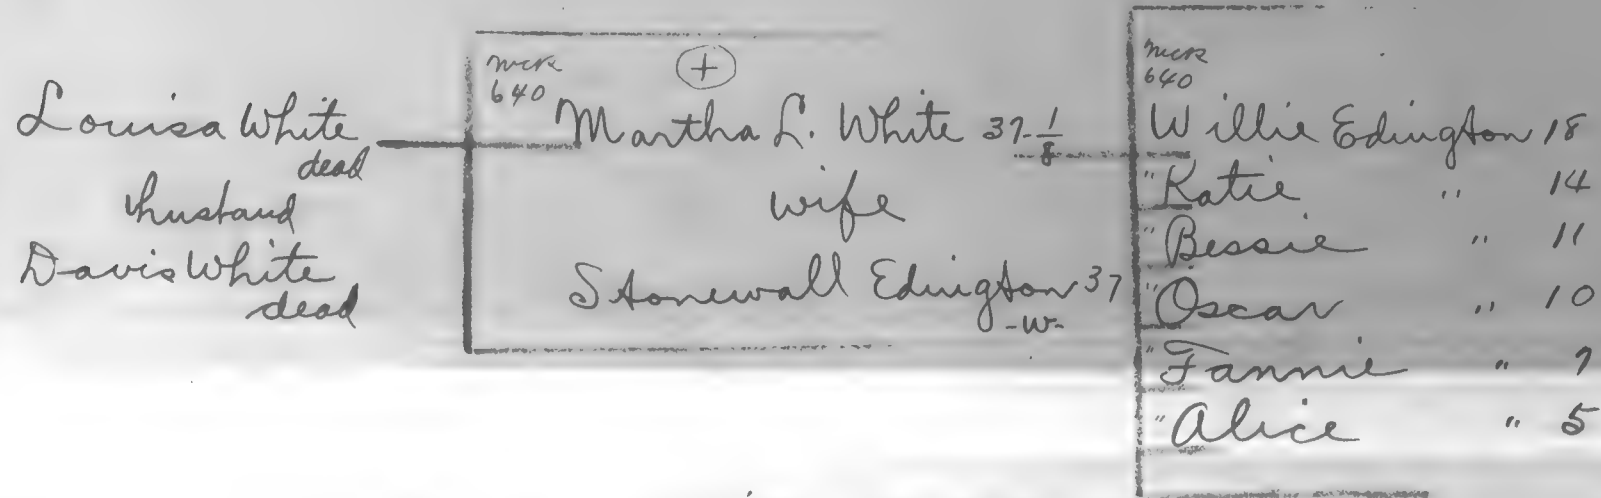 Louisa White
dead
husband
Davis White
dead
MCR
640
+
Martha L. White 37-1/8
wife
Stonewall Edington 37
-W-
MCR
640
Willie Edington 18
" Katie " 14
" Bessie " 11
" Oscar " 10
" Fannie " 7
" Alice " 5